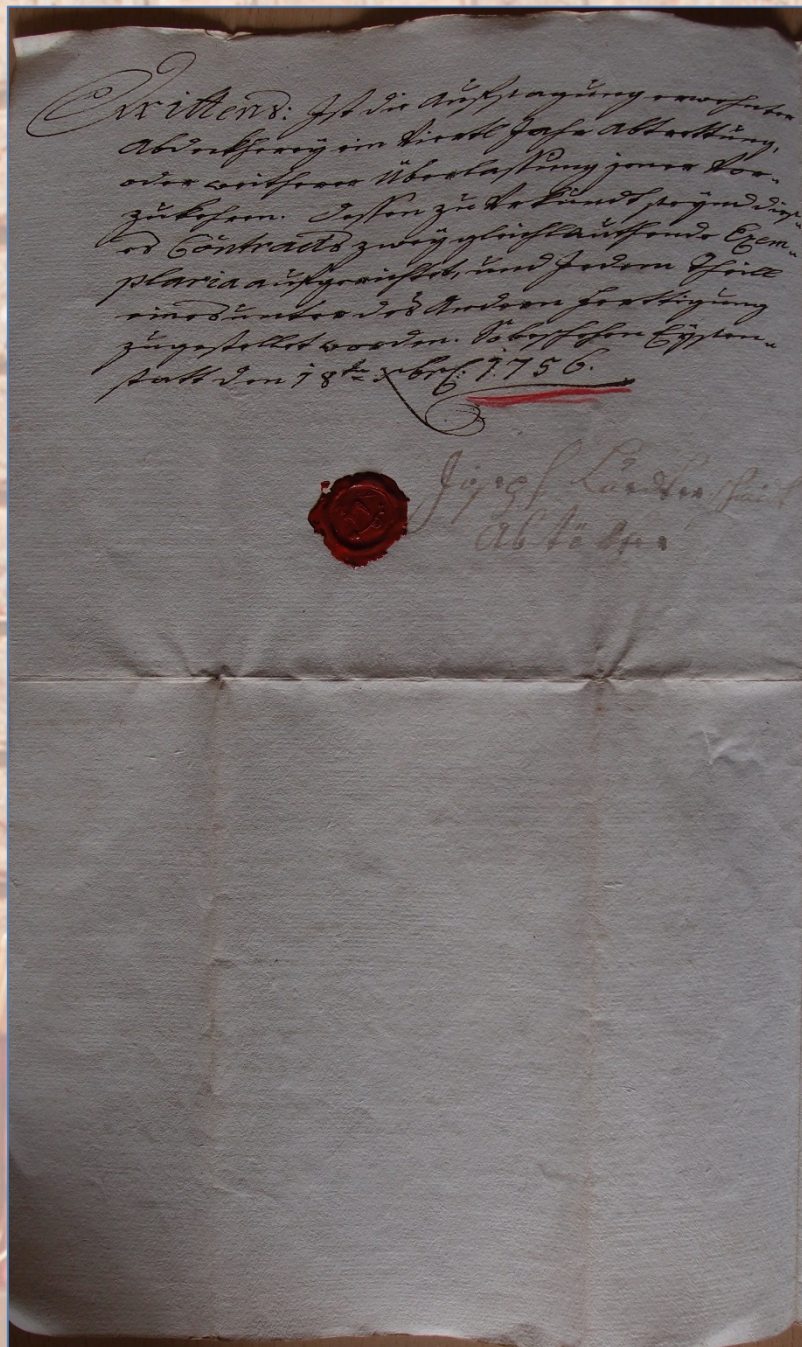 Drittens: Ist die Aufsagung erwehnter
Abdeckherey ein Viertl Jahr Abtrettung,
oder weitherer Überlassung jener Vor-
zukehren. Dessen zu Urkundt seynd dies-
es Contracts zwey gleichlauthende Exem-
plaria aufgerichtet, und Jedem Theill
eines unter des Andern Ferttigung
zugestellet worden. So beschehen Eyssen-
statt den 18ten xbris: 1756.
Joseph